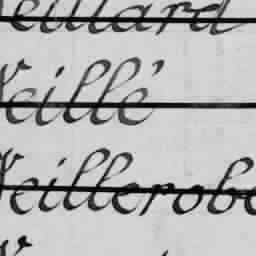 Veillard
Veillé
Veillerobe